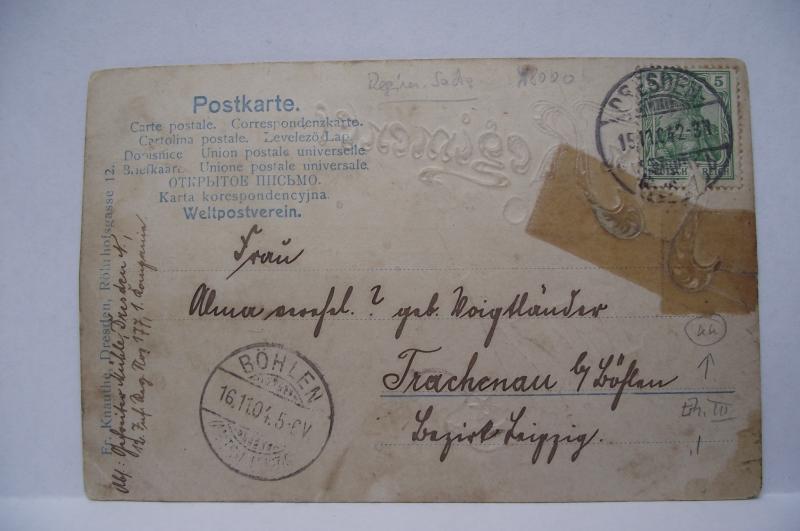 Postkarte.
Carte postale. Correspondenzkarte.
Cartolina postale. Levelező-Lap.
Dopisnice Union postale universelle
Briefkaart. Unione postale universale.
ОТКРЫТОЕ ПИСЬМО.
Karta korespondencyjna.
Weltpostverein.
DRESDEN
15.11.04.2-3N
5
DEUTSCHES REICH
Frau
Alma verehel. ? geb. Voigtländer
Trachenau b/Böhlen
Bezirk Leipzig.
BÖHLEN
16.11.04.5-6V
Fr. Knauthe, Dresden, Röhrhofsgasse 12.
Abs: Mühle, Dresden N,
12. Inf. Reg. No 177, 1. Kompanie